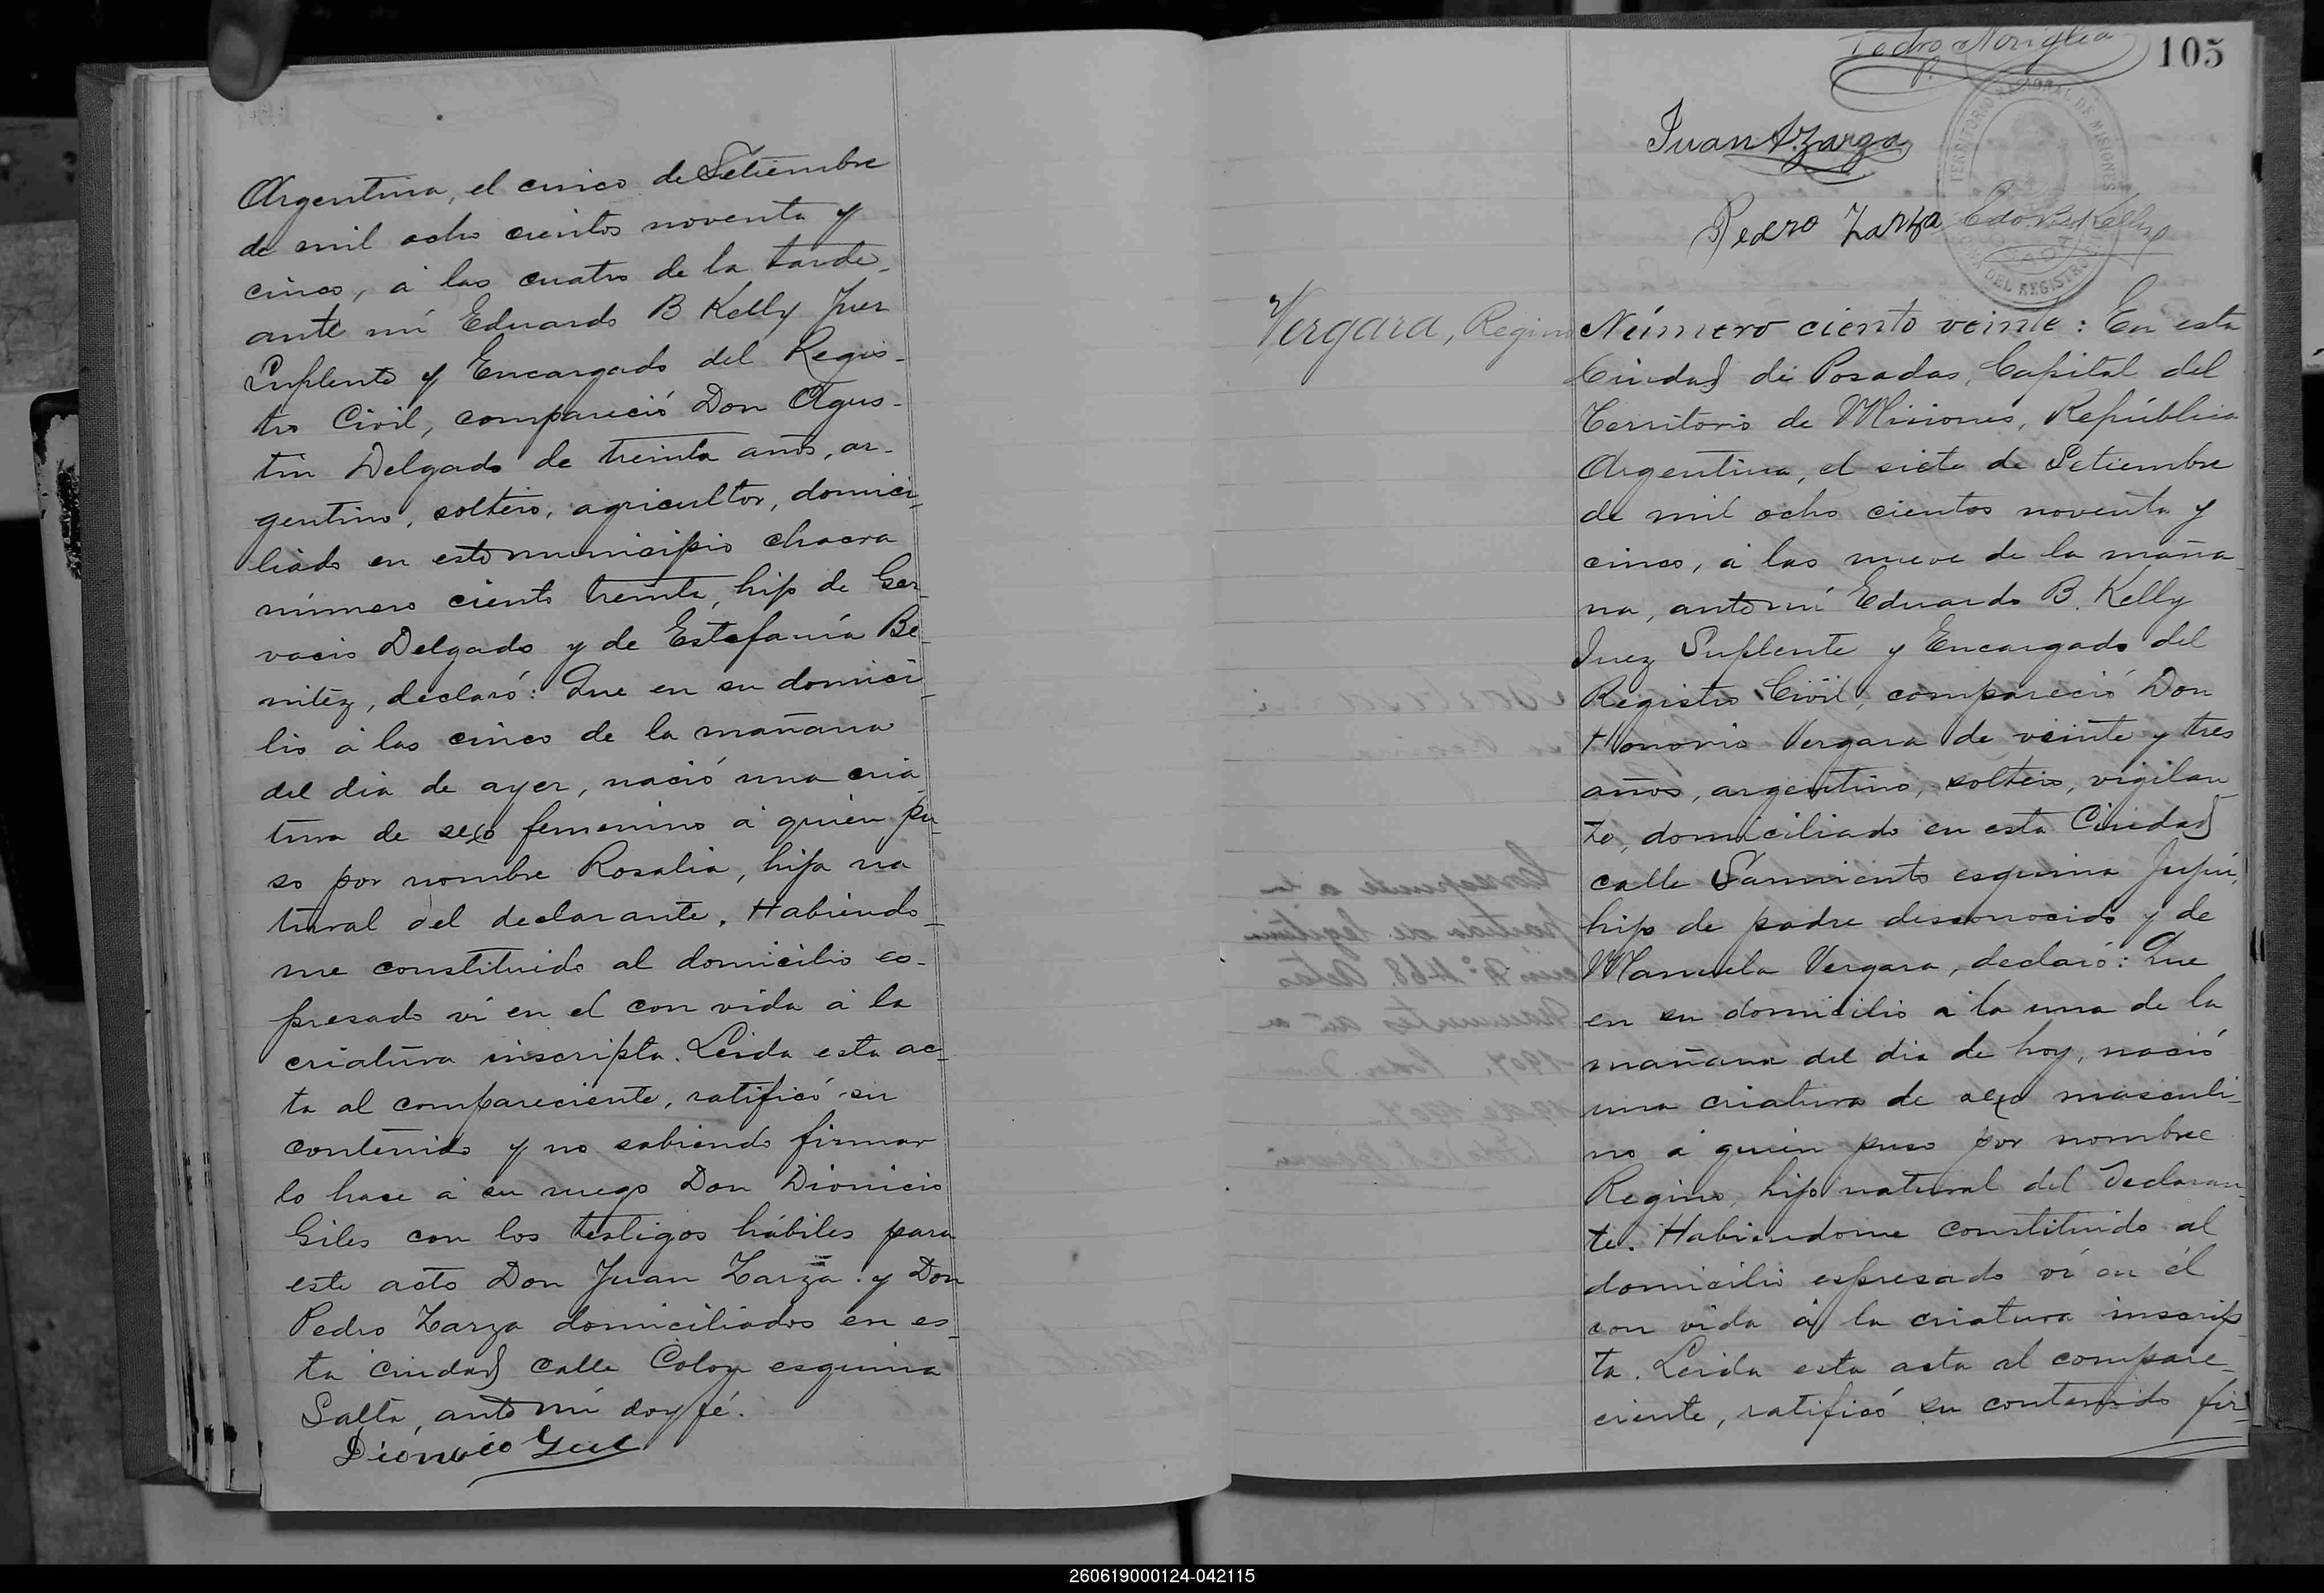 Argentina, el cinco de Setiembre
de mil ocho cientos noventa y
cinco, á las cuatro de la tarde,
ante mí Eduardo B Kelly Juez
Suplente y Encargado del Regis-
tro Civil, compareció Don Agus-
tin Delgado de treinta años, ar-
gentino, soltero, agricultor, domici-
liado en este municipio chacra
número ciento treinta, hijo de Ger-
vacio Delgado y de Estefanía Be-
nitez, declaró: Que en su domici-
lio á las cinco de la mañana
del dia de ayer, nació una cria-
tura de sexo femenino á quien pu-
so por nombre Rosalia, hija na
tural del declarante. Habiendo-
me constituido al domicilio es-
presado ví en el con vida á la
criatura inscripta. Leida esta ac-
ta al compareciente, ratificó su
contenido y no sabiendo firmar
lo hace á su ruego Don Dionicio
Giles con los testigos hábiles para
este acto Don Juan Zarza y Don
Pedro Zarza domiciliados en es-
ta ciudad calle Colon esquina
Salta, ante mí doy fé.
Dionicio
105
Pedro
Juan A. Zarza
Pedro Zarza Edo. B. Kelly
TERRITORIO NACIONAL DE MISIONES
DEL REGISTRO
Vergara, Regino
Número ciento veinte: En esta
Ciudad de Posadas, Capital del
Territorio de Misiones, República
Argentina, el siete de Setiembre
de mil ocho cientos noventa y
cinco, á las nueve de la maña-
na, ante mí Eduardo B. Kelly
Juez Suplente y Encargado del
Registro Civil, compareció Don
Honorio Vergara de veinte y tres
años, argentino, soltero, vigilan-
te, domiciliado en esta Ciudad
calle Sarmiento esquina Jujui,
hijo de padre desconocido y de
Manuela Vergara, declaró: Que
en su domicilio á la una de la
mañana del dia de hoy, nació
una criatura de sexo masculi-
no á quien puso por nombre
Regino, hijo natural del declaran-
te. Habiendome constituido al
domicilio espresado ví en él
con vida á la criatura inscrip-
ta. Leida esta acta al compare-
ciente, ratificó su contenido fir-
260619000124-042115